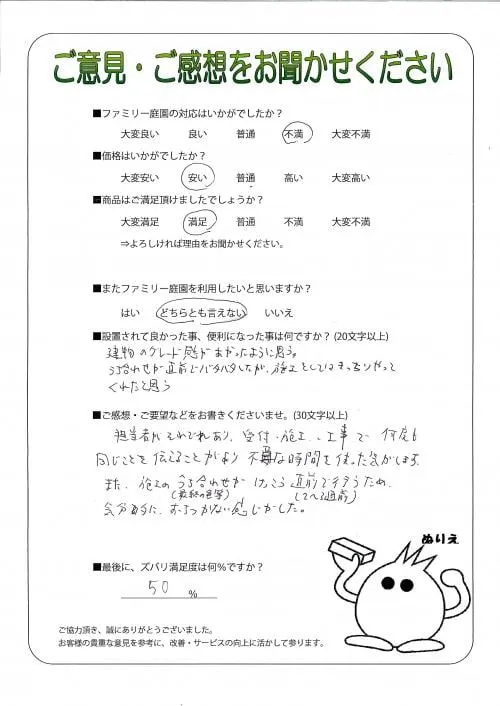 ご意見・ご感想をお聞かせください
■ファミリー庭園の対応はいかがでしたか？
大変良い 良い 普通 不満 大変不満
■価格はいかがでしたか？
大変安い 安い 普通 高い 大変高い
■商品はご満足頂けましたでしょうか？
大変満足 満足 普通 不満 大変不満
⇒よろしければ理由をお聞かせください。
■またファミリー庭園を利用したいと思いますか？
はい どちらとも言えない いいえ
■設置されて良かった事、便利になった事は何ですか？(20文字以上)
建物のグレード感があがったように思う。
うち合わせが直前でバタバタしたが、施工としてはきっちりやって
くれたと思う
■ご感想・ご要望などをお書きくださいませ。(30文字以上)
担当者がそれぞれあり、受付、施工、工事で 何度も
同じことを伝えることがあり 不要な時間を使った気がします。
また、施工のうち合わせが けっこう直前で行うため、
(最終の色等) (2〜3週前)
気分的に、おちつかない感じがした。
■最後に、ズバリ満足度は何%ですか？
50 %
ぬりえ
ご協力頂き、誠にありがとうございました。
お客様の貴重な意見を参考に、改善・サービスの向上に活かして参ります。